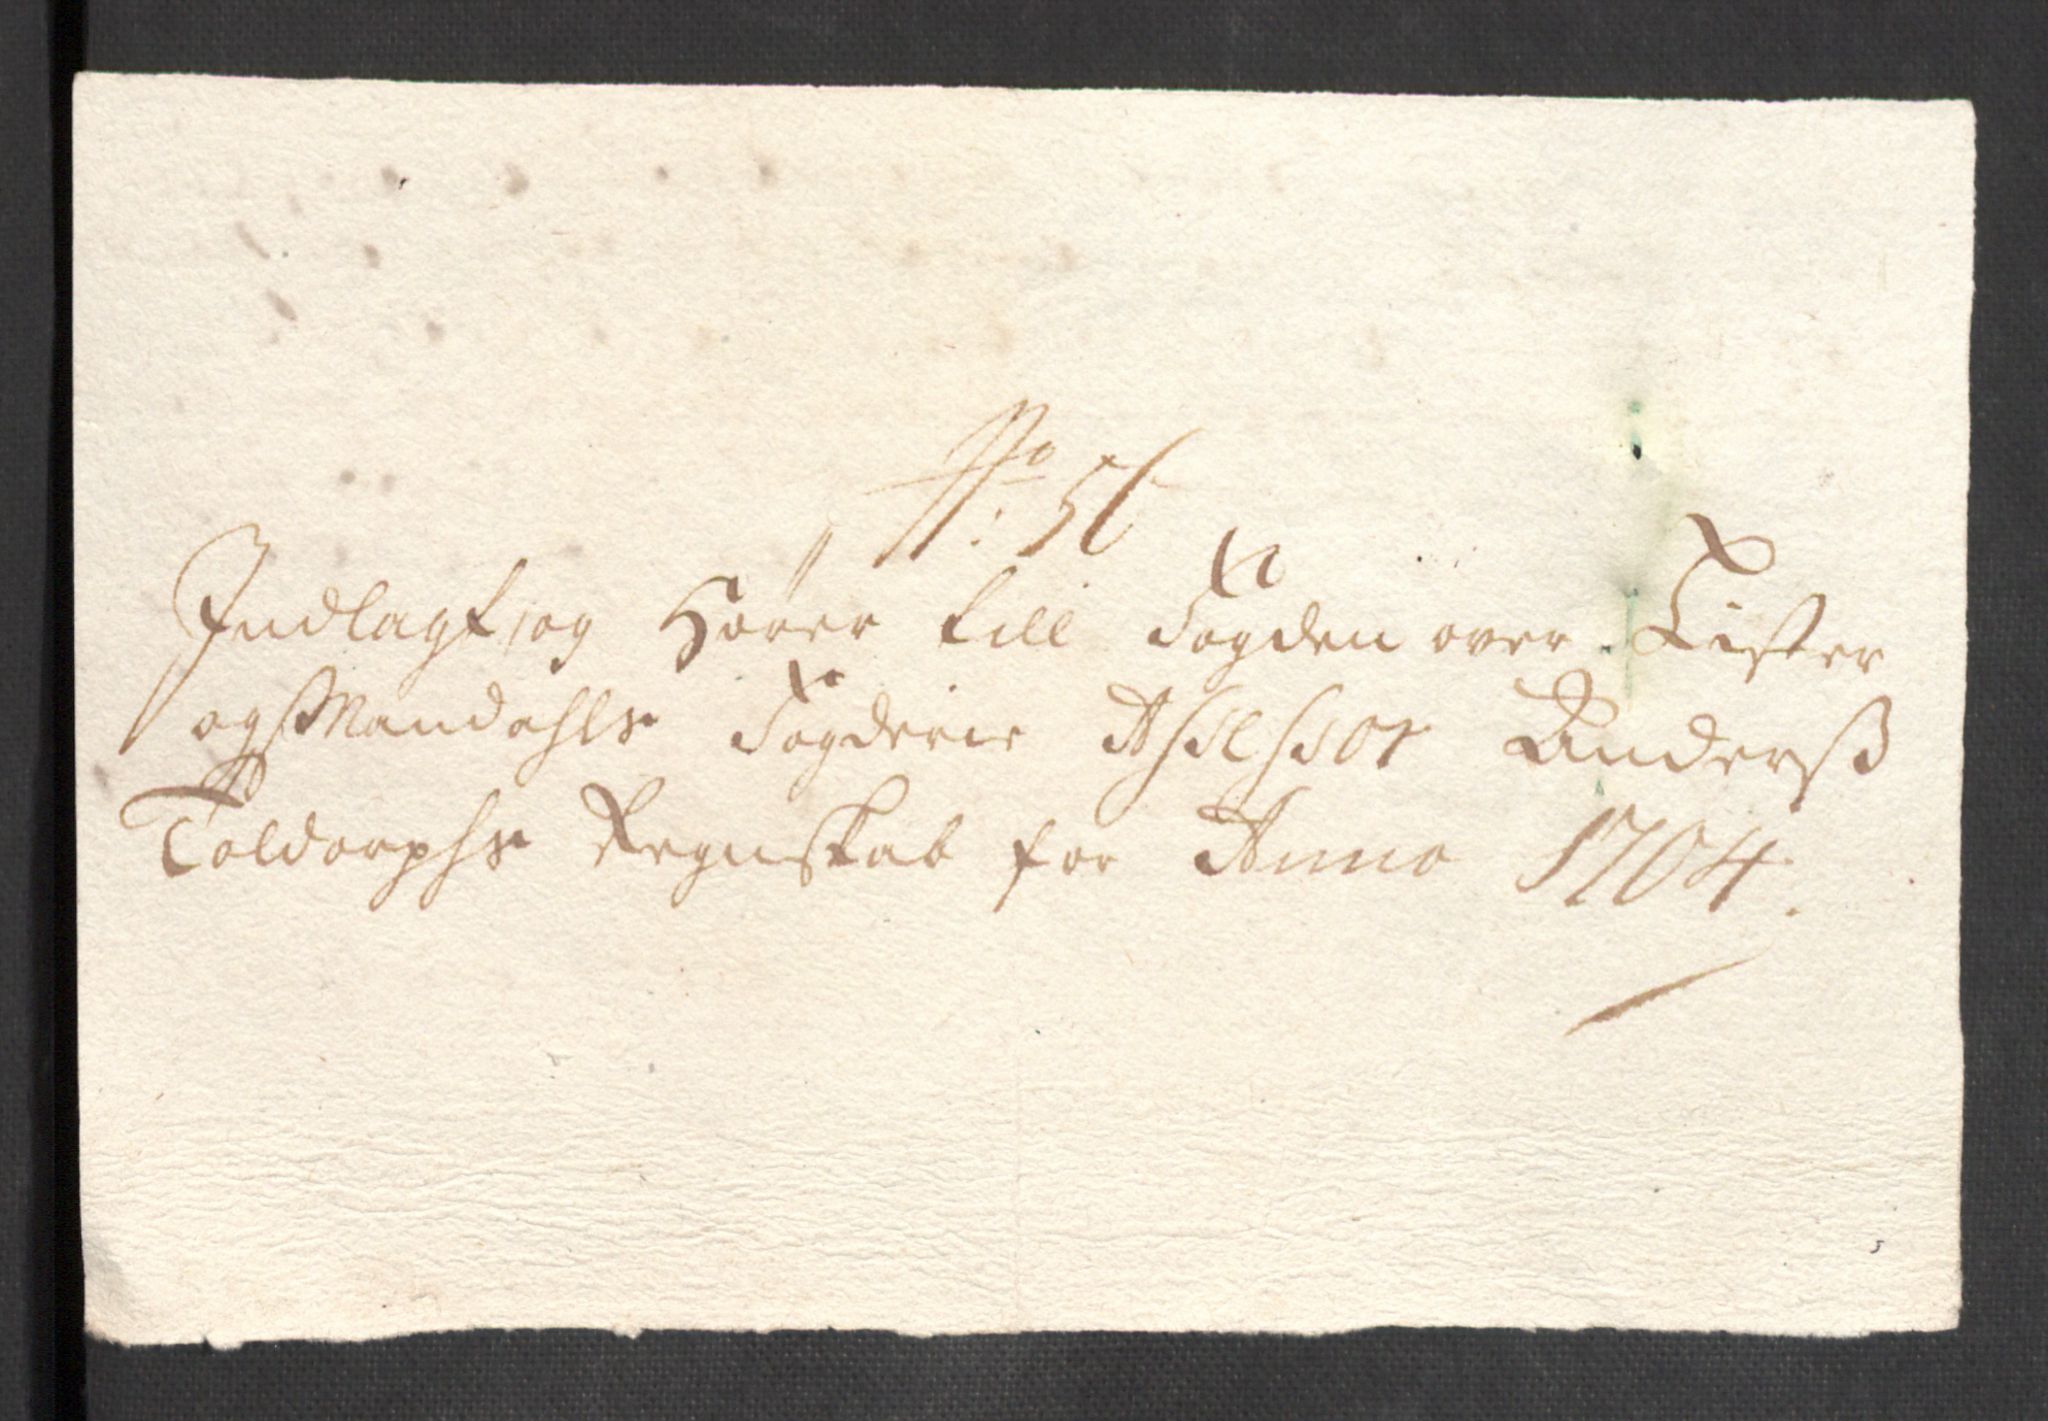 No: 56
Indlagt, og Hører till Fogden over Lister
og Mandahls Fogderie Assessor Anderß
Toldorphs Regnskab for Anno 1704.